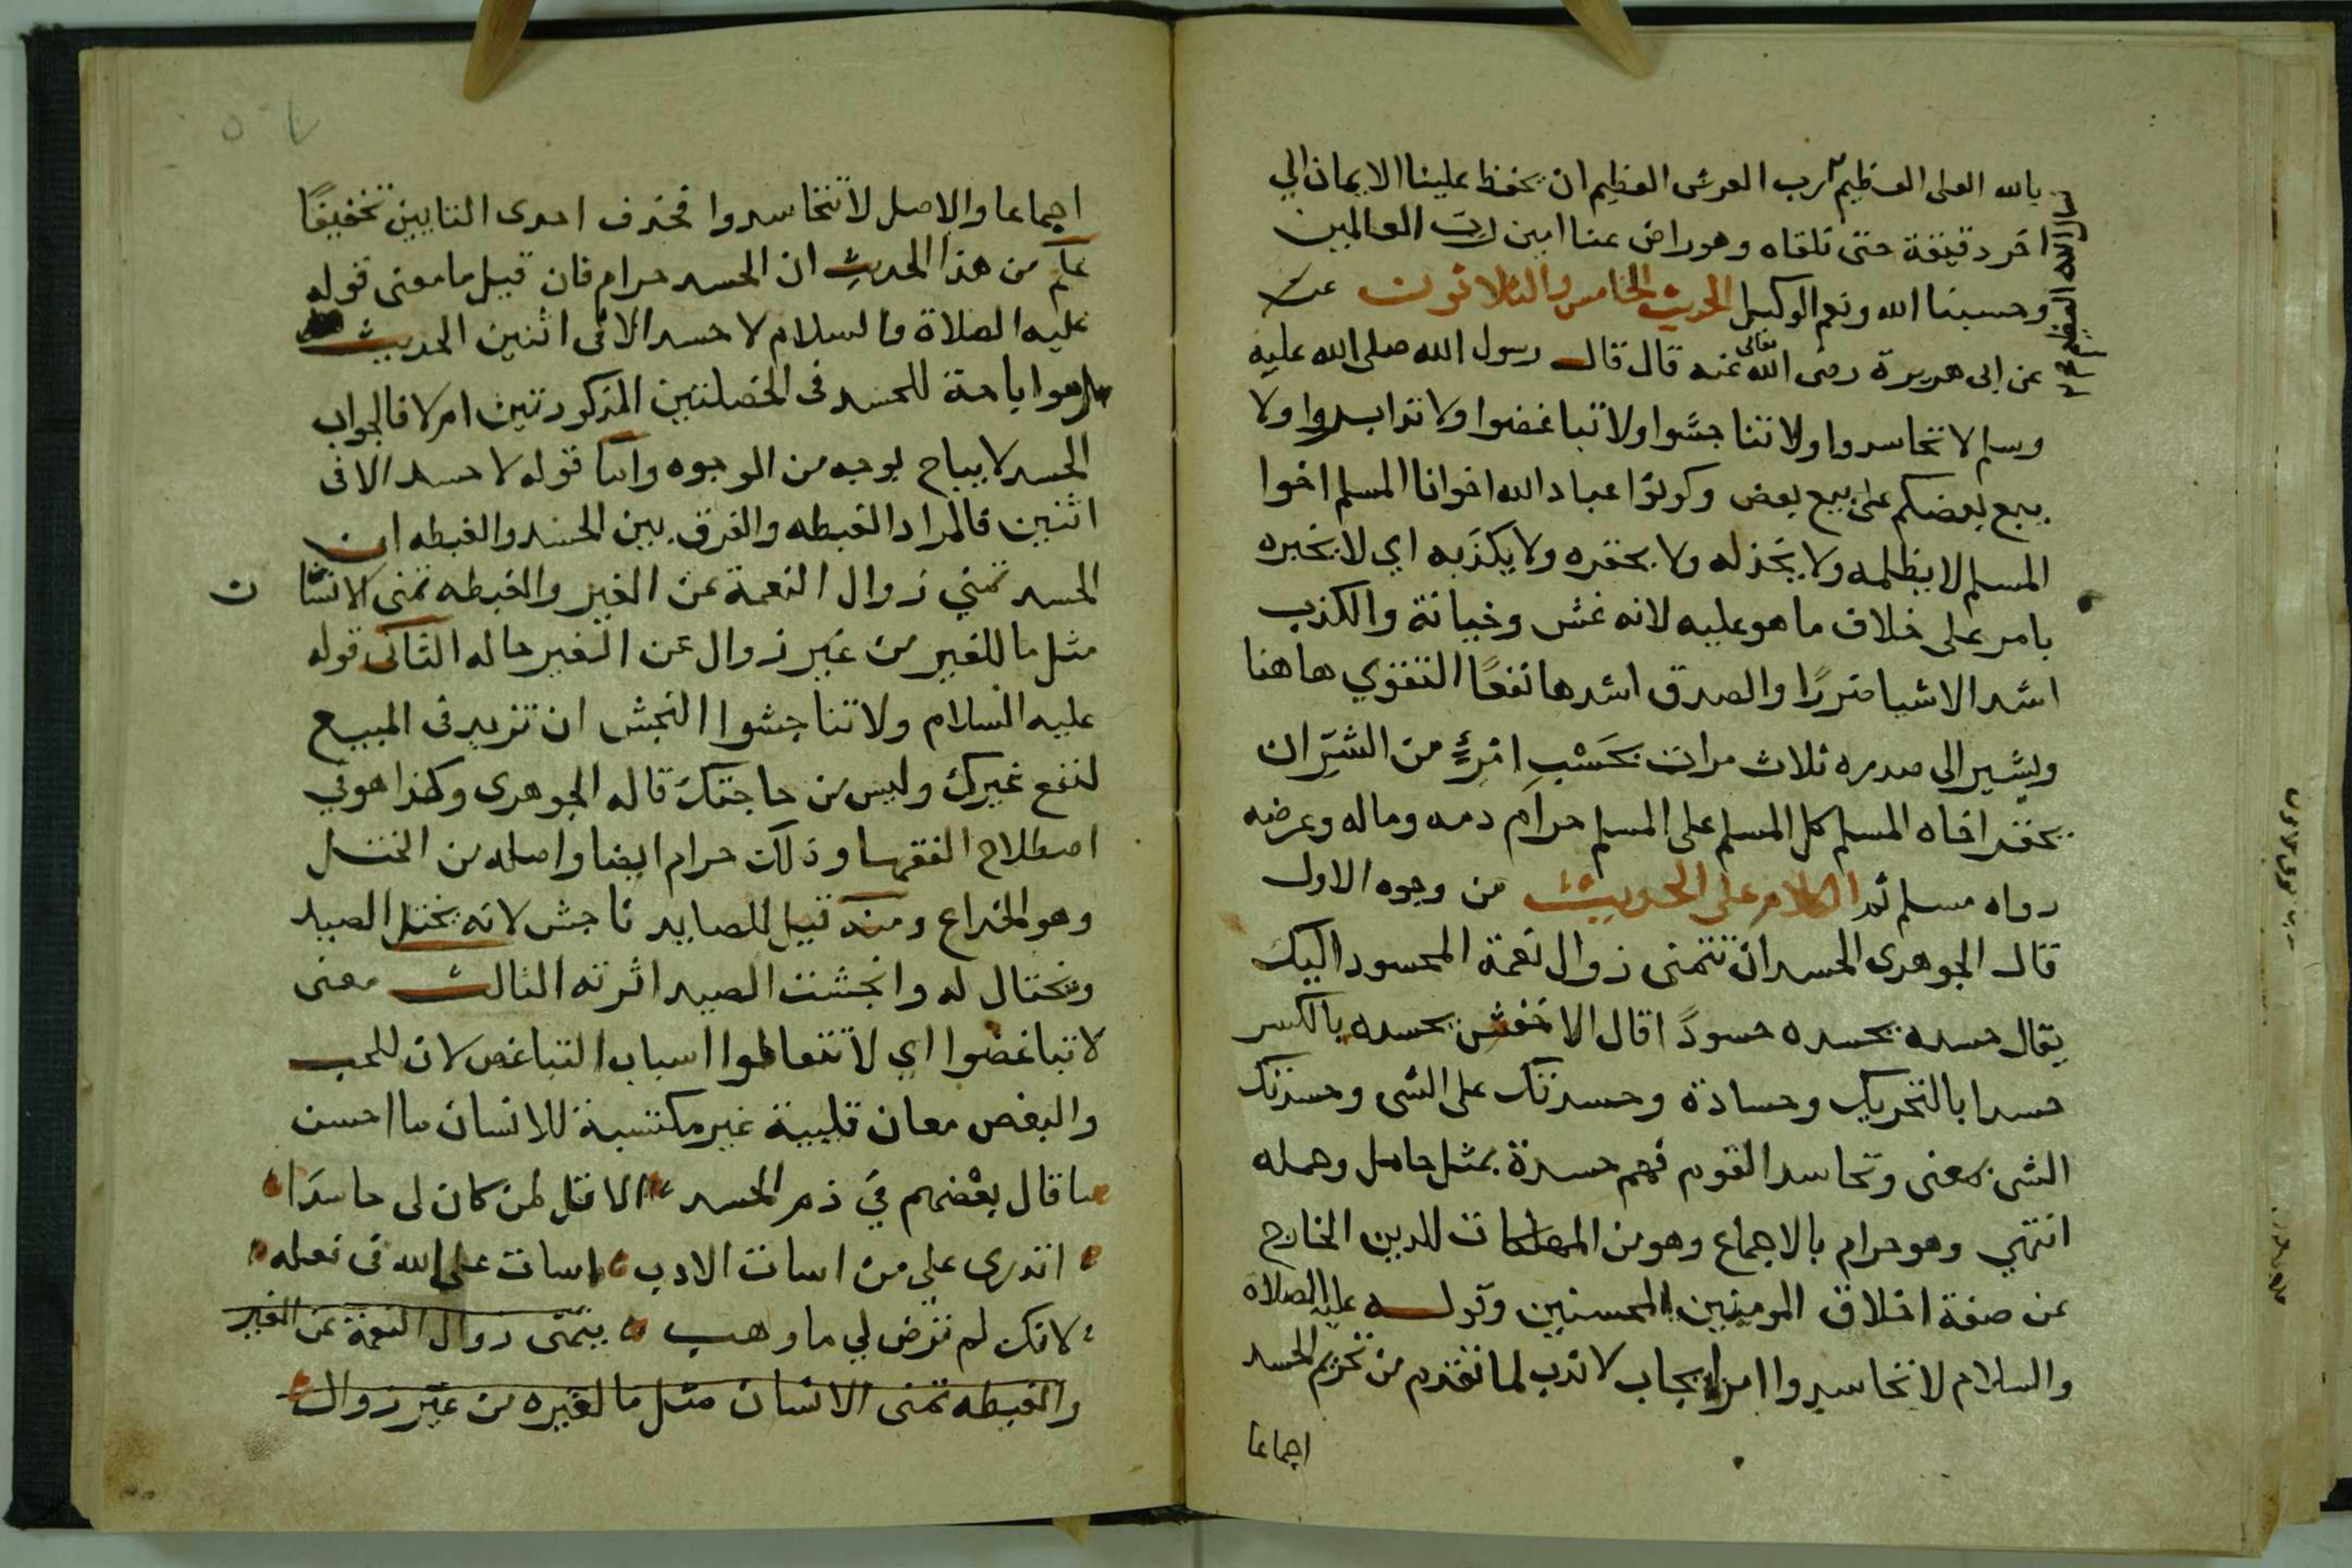 بالله العلى العظيم رب العرش العظيم ان يحفظ علينا الايمان الي
اخر دقيقة حتى نلقاه وهو راض عنا امين رب العالمين
وحسبنا الله ونعم الوكيل الحديث الخامس والثلاثون
عن ابى هريرة رضى الله تعالى عنه قال قال رسول الله صلى الله عليه
وسلم لا تحاسدوا ولا تناجشوا ولا تباغضوا ولا تدابروا ولا
يبيع بعضكم على بيع بعض وكونوا عباد الله اخوانا المسلم اخوا
المسلم لا يظلمه ولا يخذله ولا يحقره ولا يكذبه اي لا يخبره
بامر على خلاف ما هو عليه لانه غش وخيانة والكذب
اشد الاشيا ضررًا والصدق اشدها نفعًا التقوي هاهنا
ويشير الى صدره ثلاث مرات بحَسْبِ امْرِئٍ من الشرّ ان
يحقر اخاه المسلم كل المسلم على المسلم حرام دمه وماله وعرضه
رواه مسلم ثم الكلام على الحديث من وجوه الاول
قال الجوهرى الحسد ان تتمنى زوال نعمة المحسود اليك
يقال حسده يحسده حسودًا قال الاخفش يحسده بالكسر
حسدا بالتحريك وحسادة وحسدتك على الشى وحسدتك
الشى بمعنى وتحاسد القوم فهم حسدة بمثل حامل وحمله
انتهي وهو حرام بالاجماع وهو من المهلكات للدين الخارج
عن صفة اخلاق المومنين المحسنين وقوله عليه الصلاه
والسلام لا تحاسدوا امر ايجاب لا ندب لما تقدم من تحريم الحسد
اجماعا
اجماعا والاصل لا تتحاسدوا فحذف احدى التايين تخفيفًا
علم من هذا الحديث ان الحسد حرام فان قيل ما معنى قوله
عليه الصلاة والسلام لا حسد الا فى اثنين الحديث
هل هو اباحة للحسد فى الخصلتين المذكورتين ام لا فالجواب
الحسد لا يباح بوجه من الوجوه واما قوله لا حسد الا فى
اثنين فالمراد الغبطه والفرق بين الحسد والغبطه ان
الحسد تمني زوال النعمة عن الغير والغبطه تمنى الانسا ن
مثل ما للغير من غير زوال عن الغير حاله الثانى قوله
عليه السلام ولا تناجشوا النجش ان تزيد فى المبيع
لنفع غيرك وليس من حاجتك قاله الجوهرى وكذا هو في
اصطلاح الفقها وذلك حرام ايضا واصله من الختل
وهو الخداع ومنه قيل للصايد ناجش لانه يختل الصيد
ويحتال له وانجشت الصيد اثرته الثالث معنى
لا تباغضوا اي لا تتعاطوا اسباب التباغض لان للحب
والبغض معان قلبية غير مكتسبة للانسان ما احسن
ما قال بعضهم في ذم الحسد الا قل لمن كان لى حاسدًا
اتدرى علي من اسات الادب اسات على الله فى فعله
لانك لم ترض لي ما وهب يتمنى زوال النعمة عن الغير
والغبطه تمنى الانسان مثل ما لغيره من غير زوال